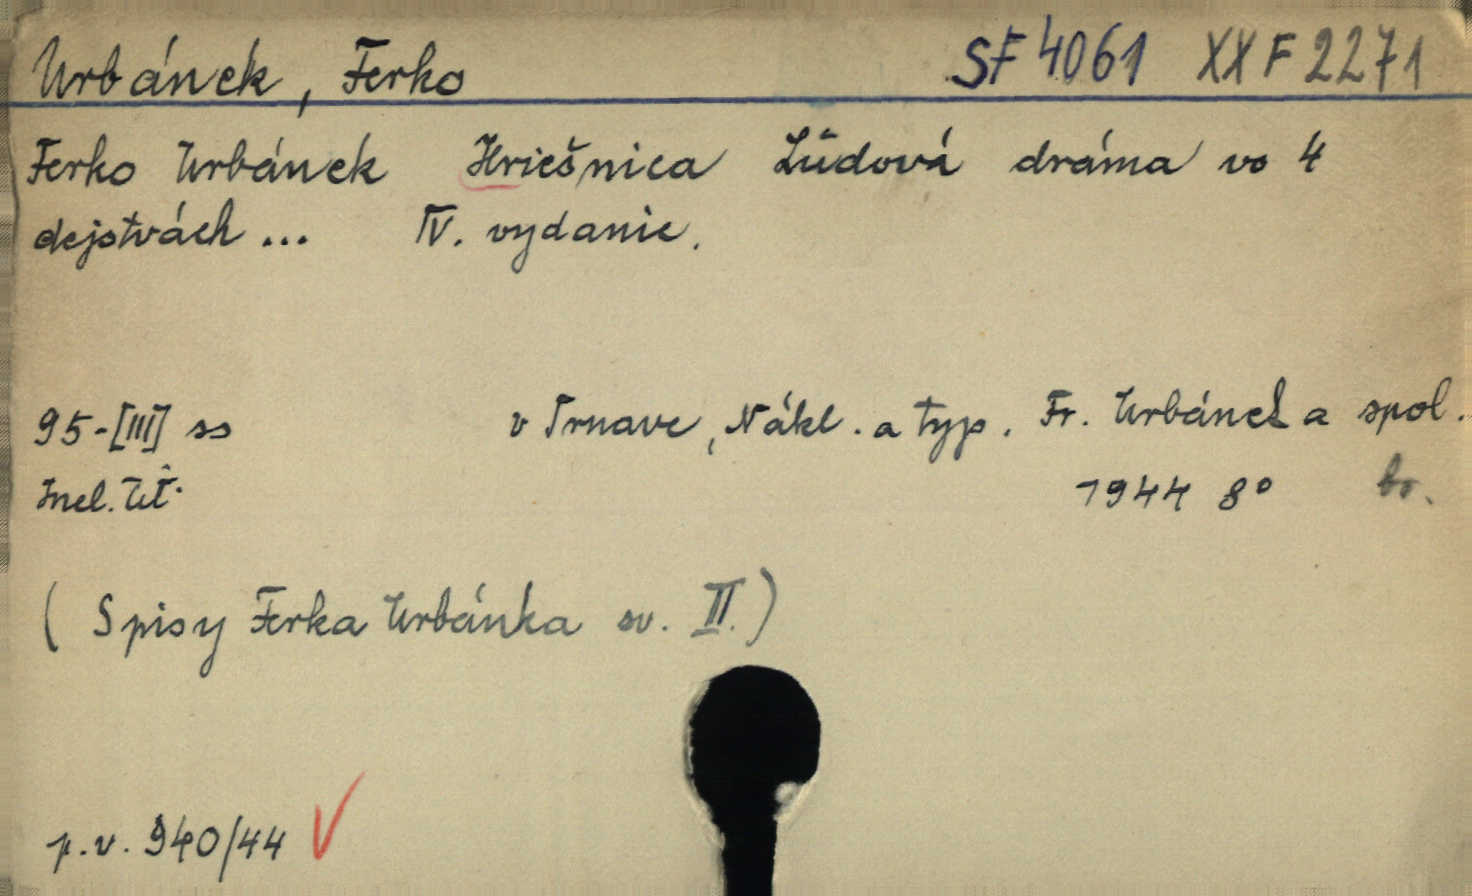 Urbánek, Ferko SF 4061 XX F 2271
Ferko Urbánek Hriešnica Ľudová dráma vo 4
dejstvách ... IV. vydanie.
95-[III] ss v Trnave, Nákl. a typ. Fr. Urbánek a spol.
Incl. tit. 1944 8° br.
(Spisy Ferka Urbánka sv. II.)
p.v. 940/44